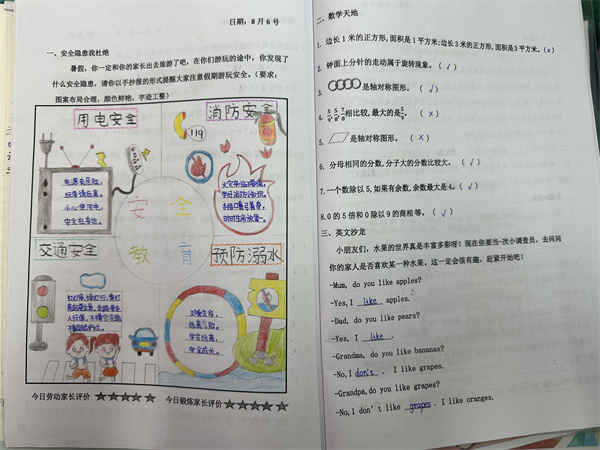 日期：8月6号
一、安全隐患我杜绝
暑假，你一定和你的家长出去旅游了吧，在你们游玩的途中，你发现了
什么安全隐患，请你以手抄报的形式提醒大家注意假期游玩安全。（要求：
图案布局合理，颜色鲜艳，字迹工整）
用电安全
消防安全
119
电源有危险，
玩耍请远离。
小心使用电，
安全在身边。
安全
教育
交通安全
预防溺水
红灯停，绿灯行，黄灯
珍爱生命，
远离危险。
学会远离，
安全成长。
今日劳动家长评价 ☆☆☆☆☆ 今日锻炼家长评价☆☆☆☆☆
二、数学天地
1. 边长1米的正方形，面积是1平方米；边长3米的正方形，面积是3平方米。（×）
2. 钟面上分针的走动属于旋转现象。（√）
3. 是轴对称图形。（√）
相比较，最大的是 。（×）
5. 是轴对称图形。（×）
6. 分母相同的分数，分子大的分数比较大。（√）
7. 一个数除以5，如果有余数，余数最大是4。（√）
8. 0的5倍和0除以9的商相等。（√）
三、英文沙龙
小朋友们，水果的世界真是丰富多彩呀！现在你要当一次小调查员，去问问
你的家人是否喜欢某一种水果。这一定会很有趣。赶紧开始吧！
-Mum, do you like apples?
-Yes, I like apples.
-Dad, do you like pears?
-Yes, I like .
-Grandma, do you like bananas?
-No, I don't . I like grapes.
-Grandpa, do you like grapes?
-No, I don't like grapes . I like oranges.